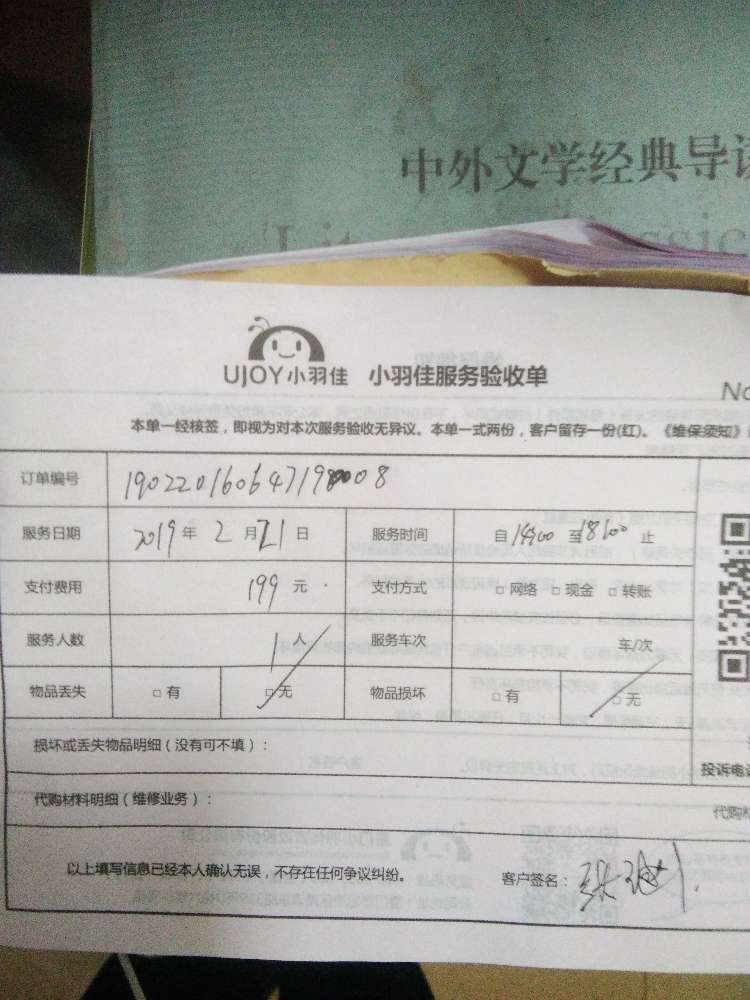 中外文学经典导读
UJOY小羽佳 小羽佳服务验收单
No
本单一经核签，即视为对本次服务验收无异议。本单一式两份，客户留存一份(红)。《维保须知》
订单编号
服务日期 2019 年 2 月 21 日 服务时间 自 14:00 至 18:00 止
支付费用 199 元 支付方式 □ 网络 □ 现金 □ 转账
服务人数 1 人 服务车次 车/次
物品丢失 □ 有 □ 无 物品损坏 □ 有 □ 无
损坏或丢失物品明细（没有可不填）：
投诉电话
代购材料明细（维修业务）：
代购材
以上填写信息已经本人确认无误，不存在任何争议纠纷。 客户签名：